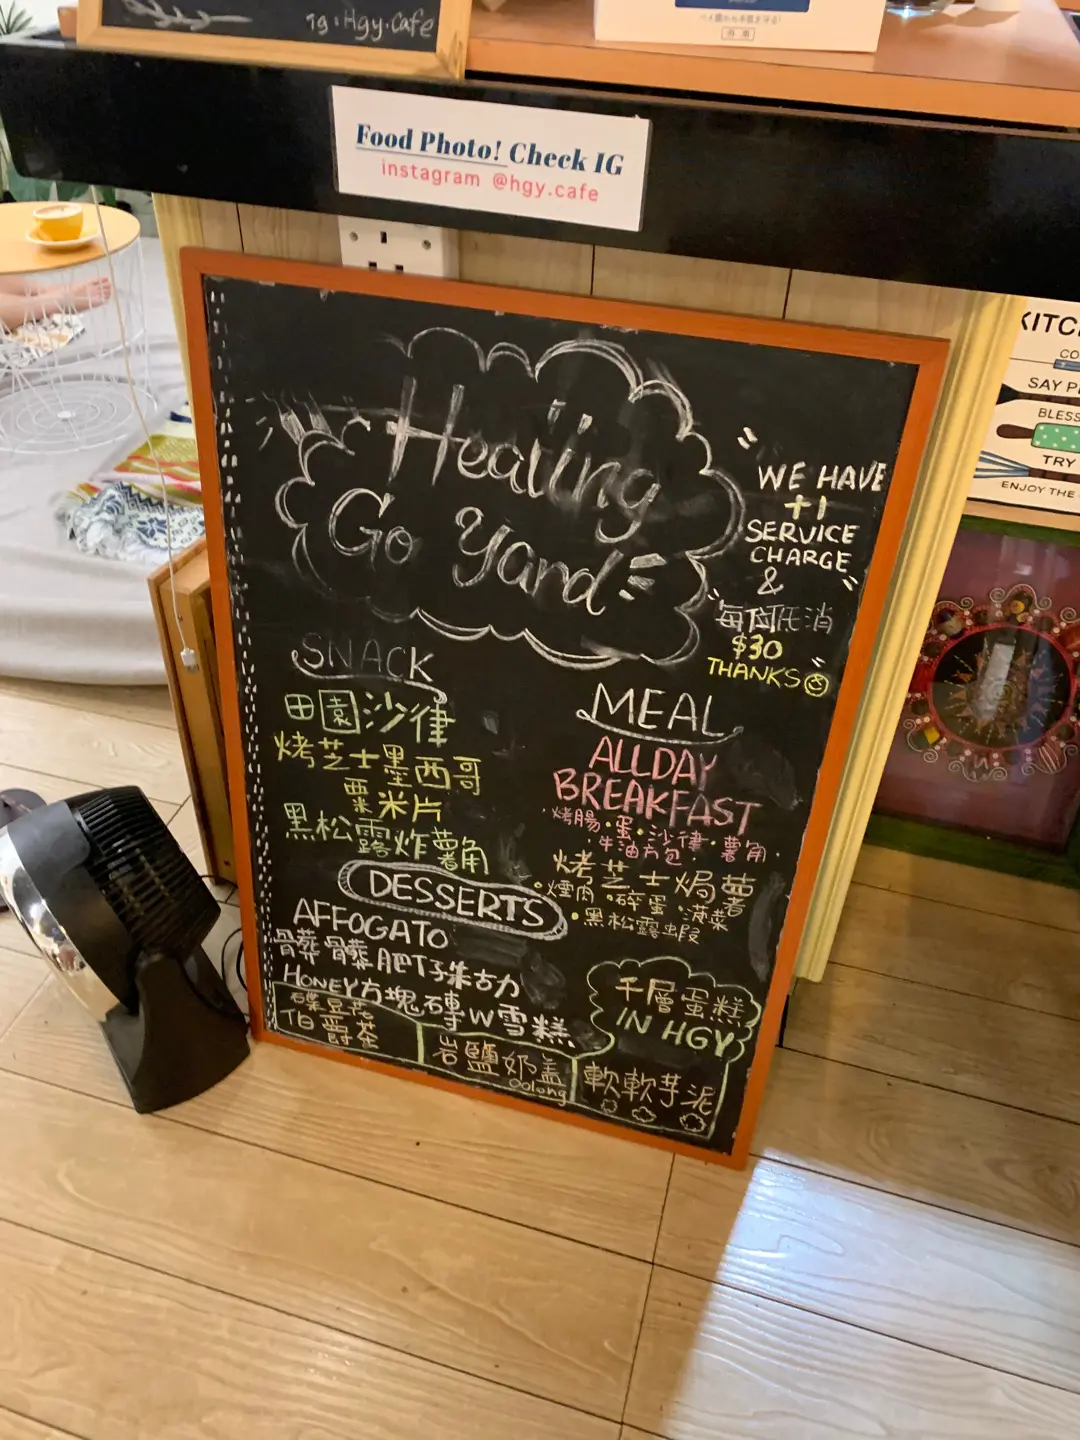 ig: Hgy.Cafe
Food Photo! Check IG
instagram @hgy.cafe
Healing
Go Yard
WE HAVE
+1
SERVICE
CHARGE
&
每位低消
$30
THANKS
SNACK
田園沙律
烤芝士墨西哥
粟米片
黑松露炸薯角
MEAL
ALLDAY
BREAKFAST
烤腸·蛋·沙律·薯角·
牛油方包
烤芝士焗薯
·煙肉·碎蛋·菠菜
·黑松露蝦
DESSERTS
AFFOGATO
骷髏肥仔朱古力
HONEY方塊磚W雪糕
豆花
伯爵茶
岩鹽奶蓋
Oolong
千層蛋糕
IN HGY
軟軟芋泥
KITC
CO
SAY P
BLESS
TRY
ENJOY THE